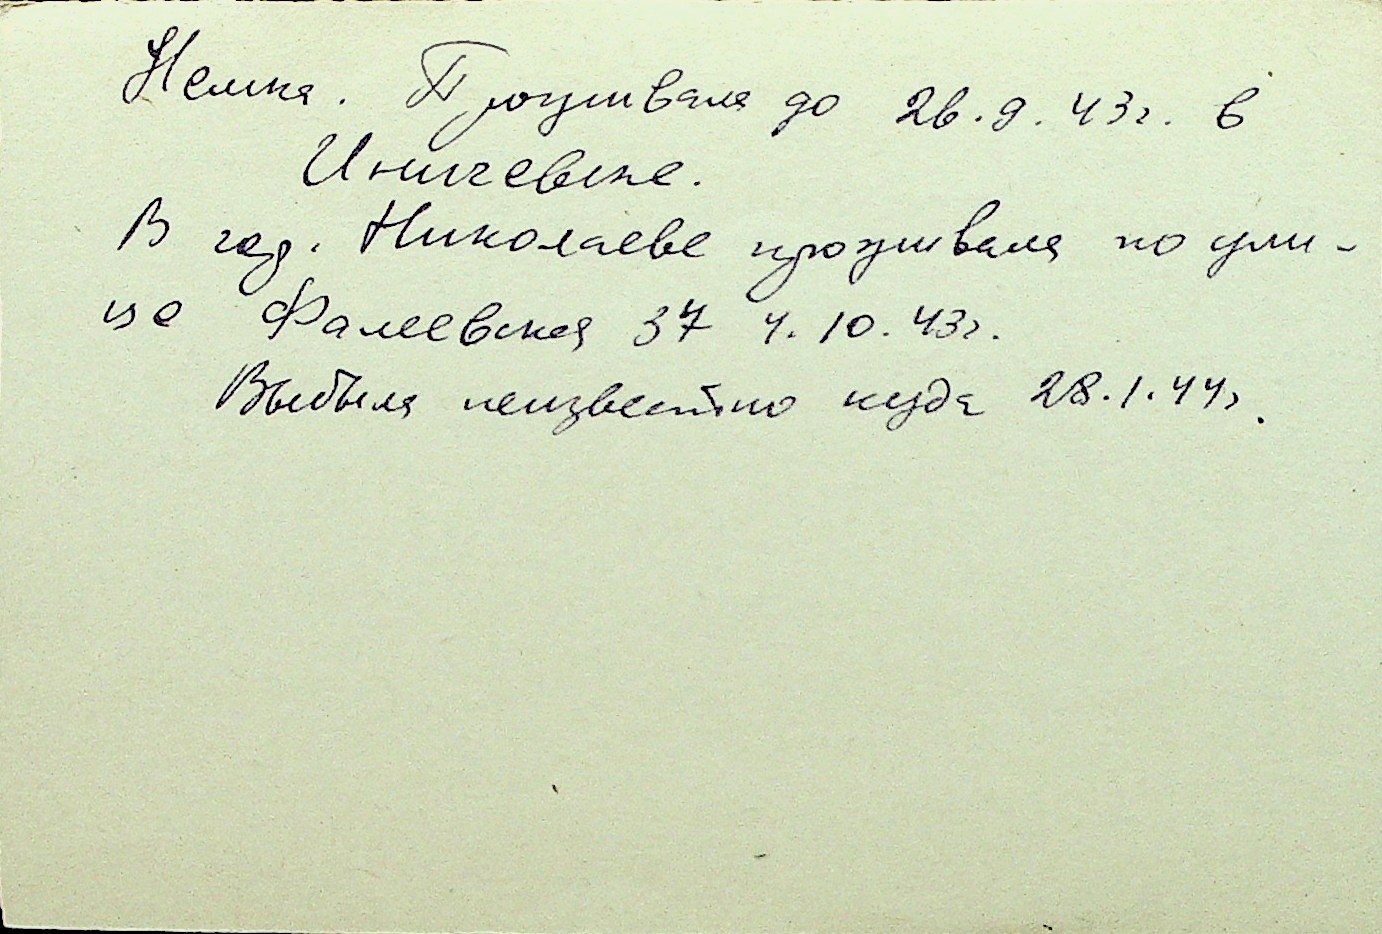 Немка. Проживала до 26.9.43г. в
Иничевске.
В гор. Николаеве проживала по ули-
це Фалеевская 37 4.10.43г.
Выбыла неизвестно куда 28.1.44г.